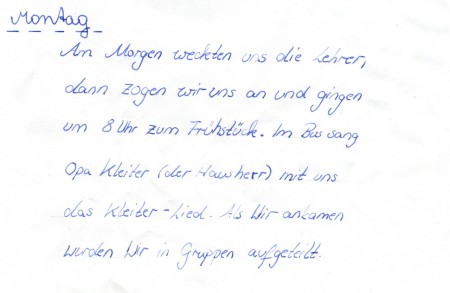 Montag
Am Morgen weckten uns die Lehrer,
dann zogen wir uns an und gingen
um 8 Uhr zum Frühstück. Im Bus sang
Opa Kleiter (der Hausherr) mit uns
das Kleiter-Lied. Als Wir ankamen
wurden Wir in Gruppen aufgeteilt.